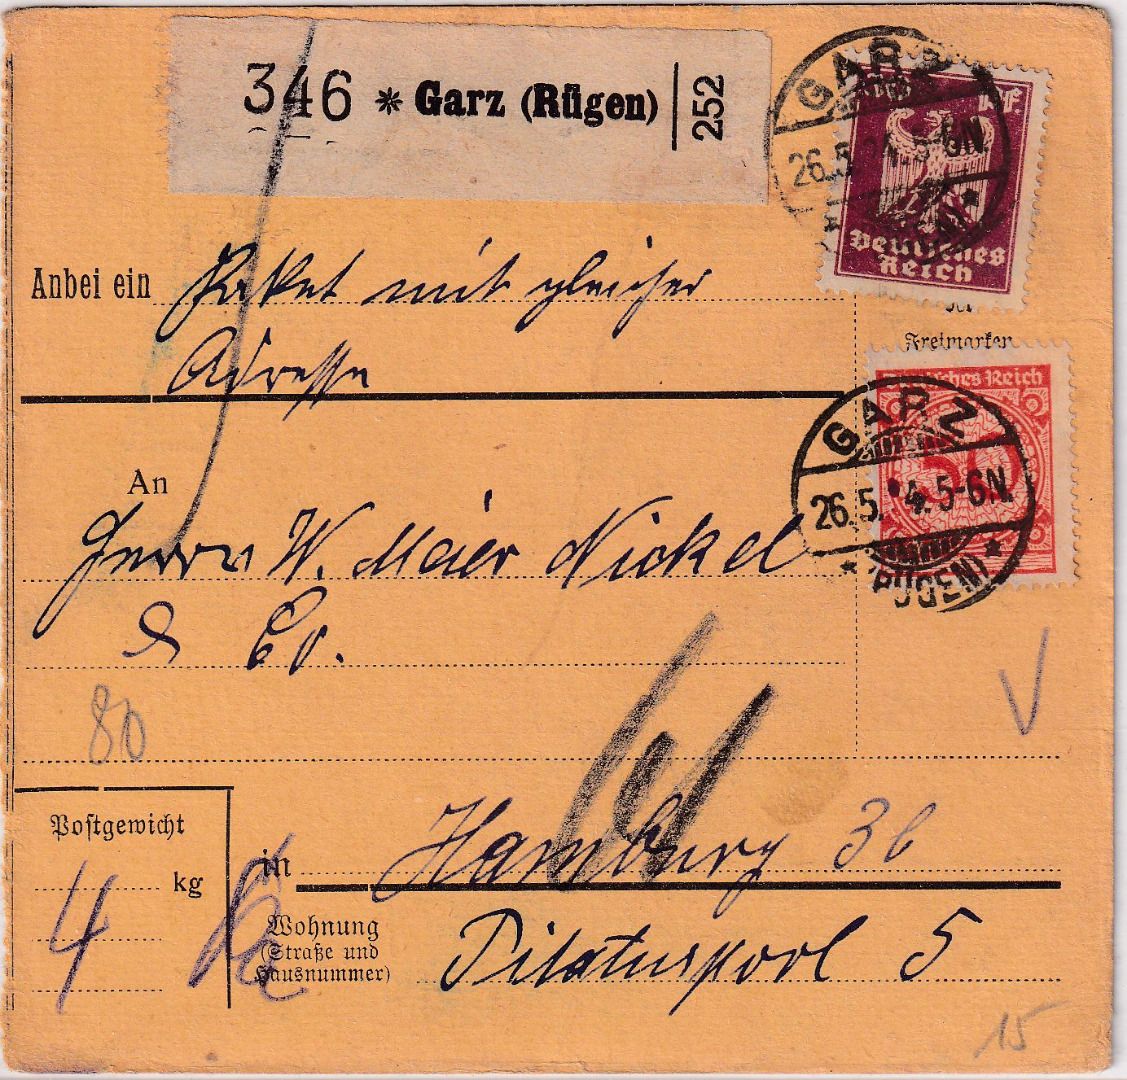 346 * Garz (Rügen) 252
GARZ
26.5. 4. 5-6N.
Pf
Deutsches
Reich
Anbei ein Paket mit gleicher
Adresse
Freimarken
Deutsches Reich
GARZ
26.5. 4. 5-6N.
* (RÜGEN) *
An
Herrn W. Meier Nickel
& Co.
80
Postgewicht
4 kg
in Hamburg 36
Wohnung
(Straße und
Hausnummer)
Pilatuspool 5
15